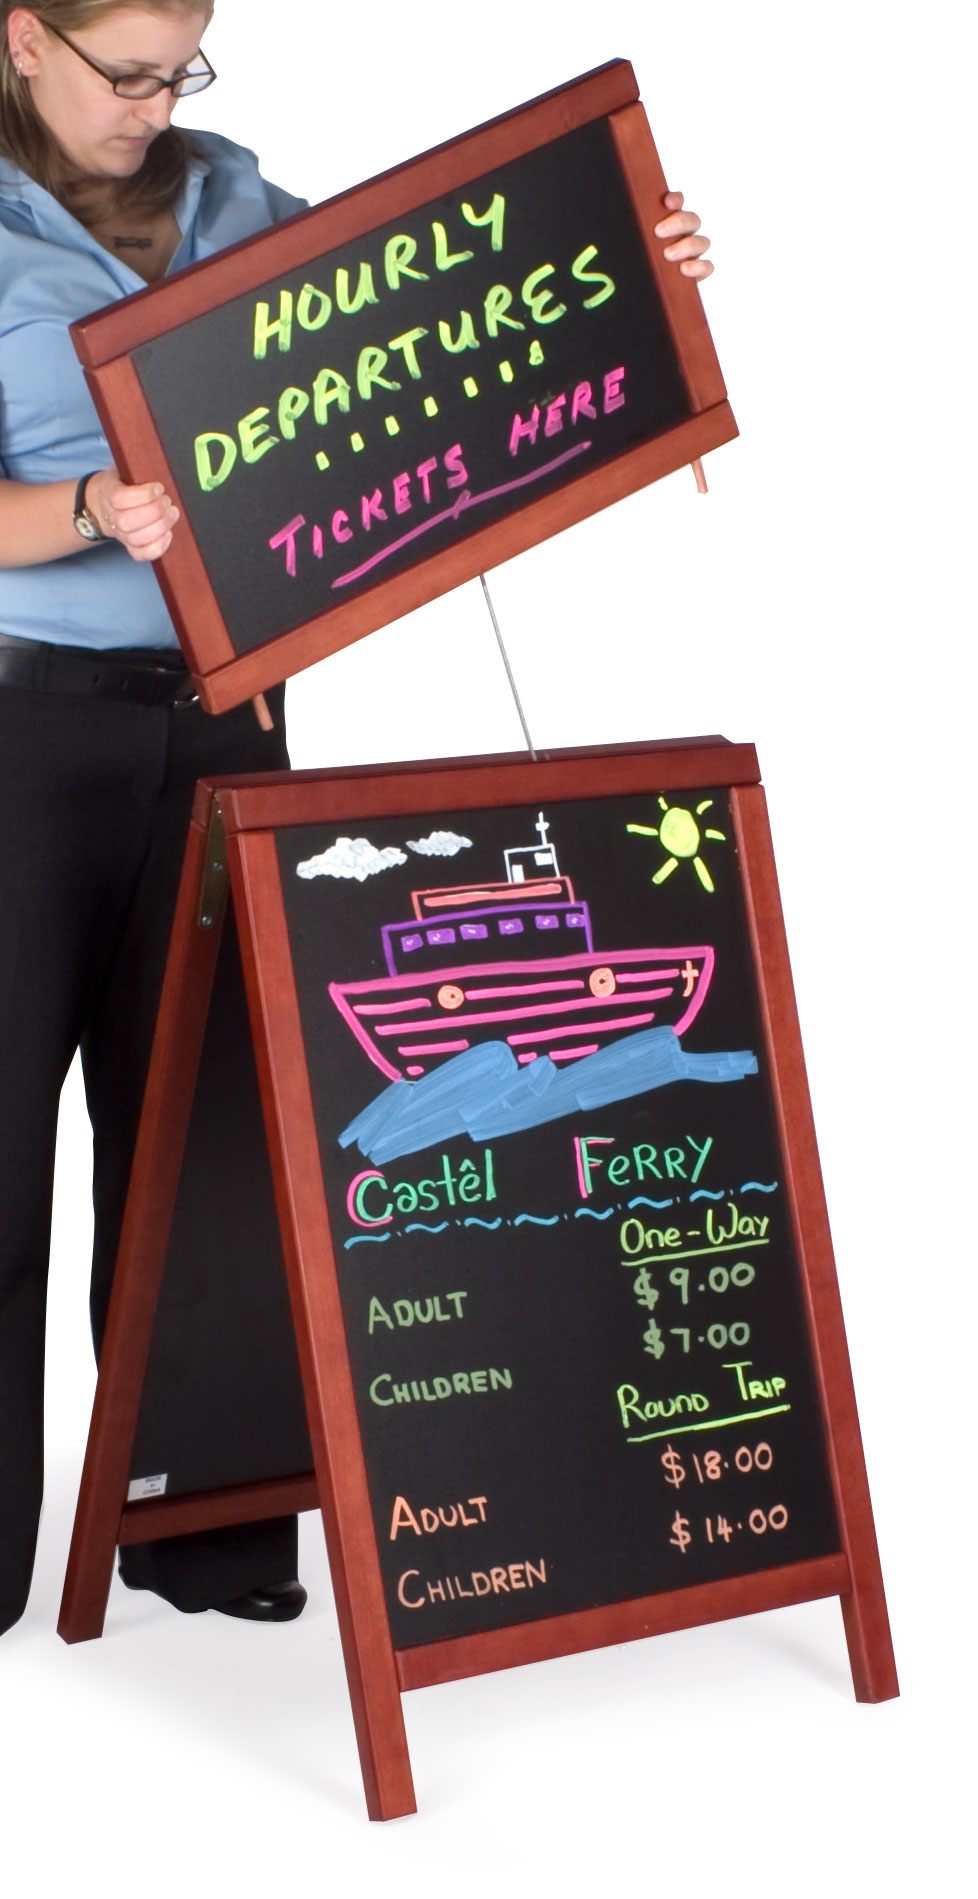 HOURLY
DEPARTURES
TICKETS HERE
Castêl FeRRY
One-Way
ADULT $9.00
CHILDREN $7.00
ROUND TRIP
ADULT $18.00
CHILDREN $14.00
MADE
IN
CHINA